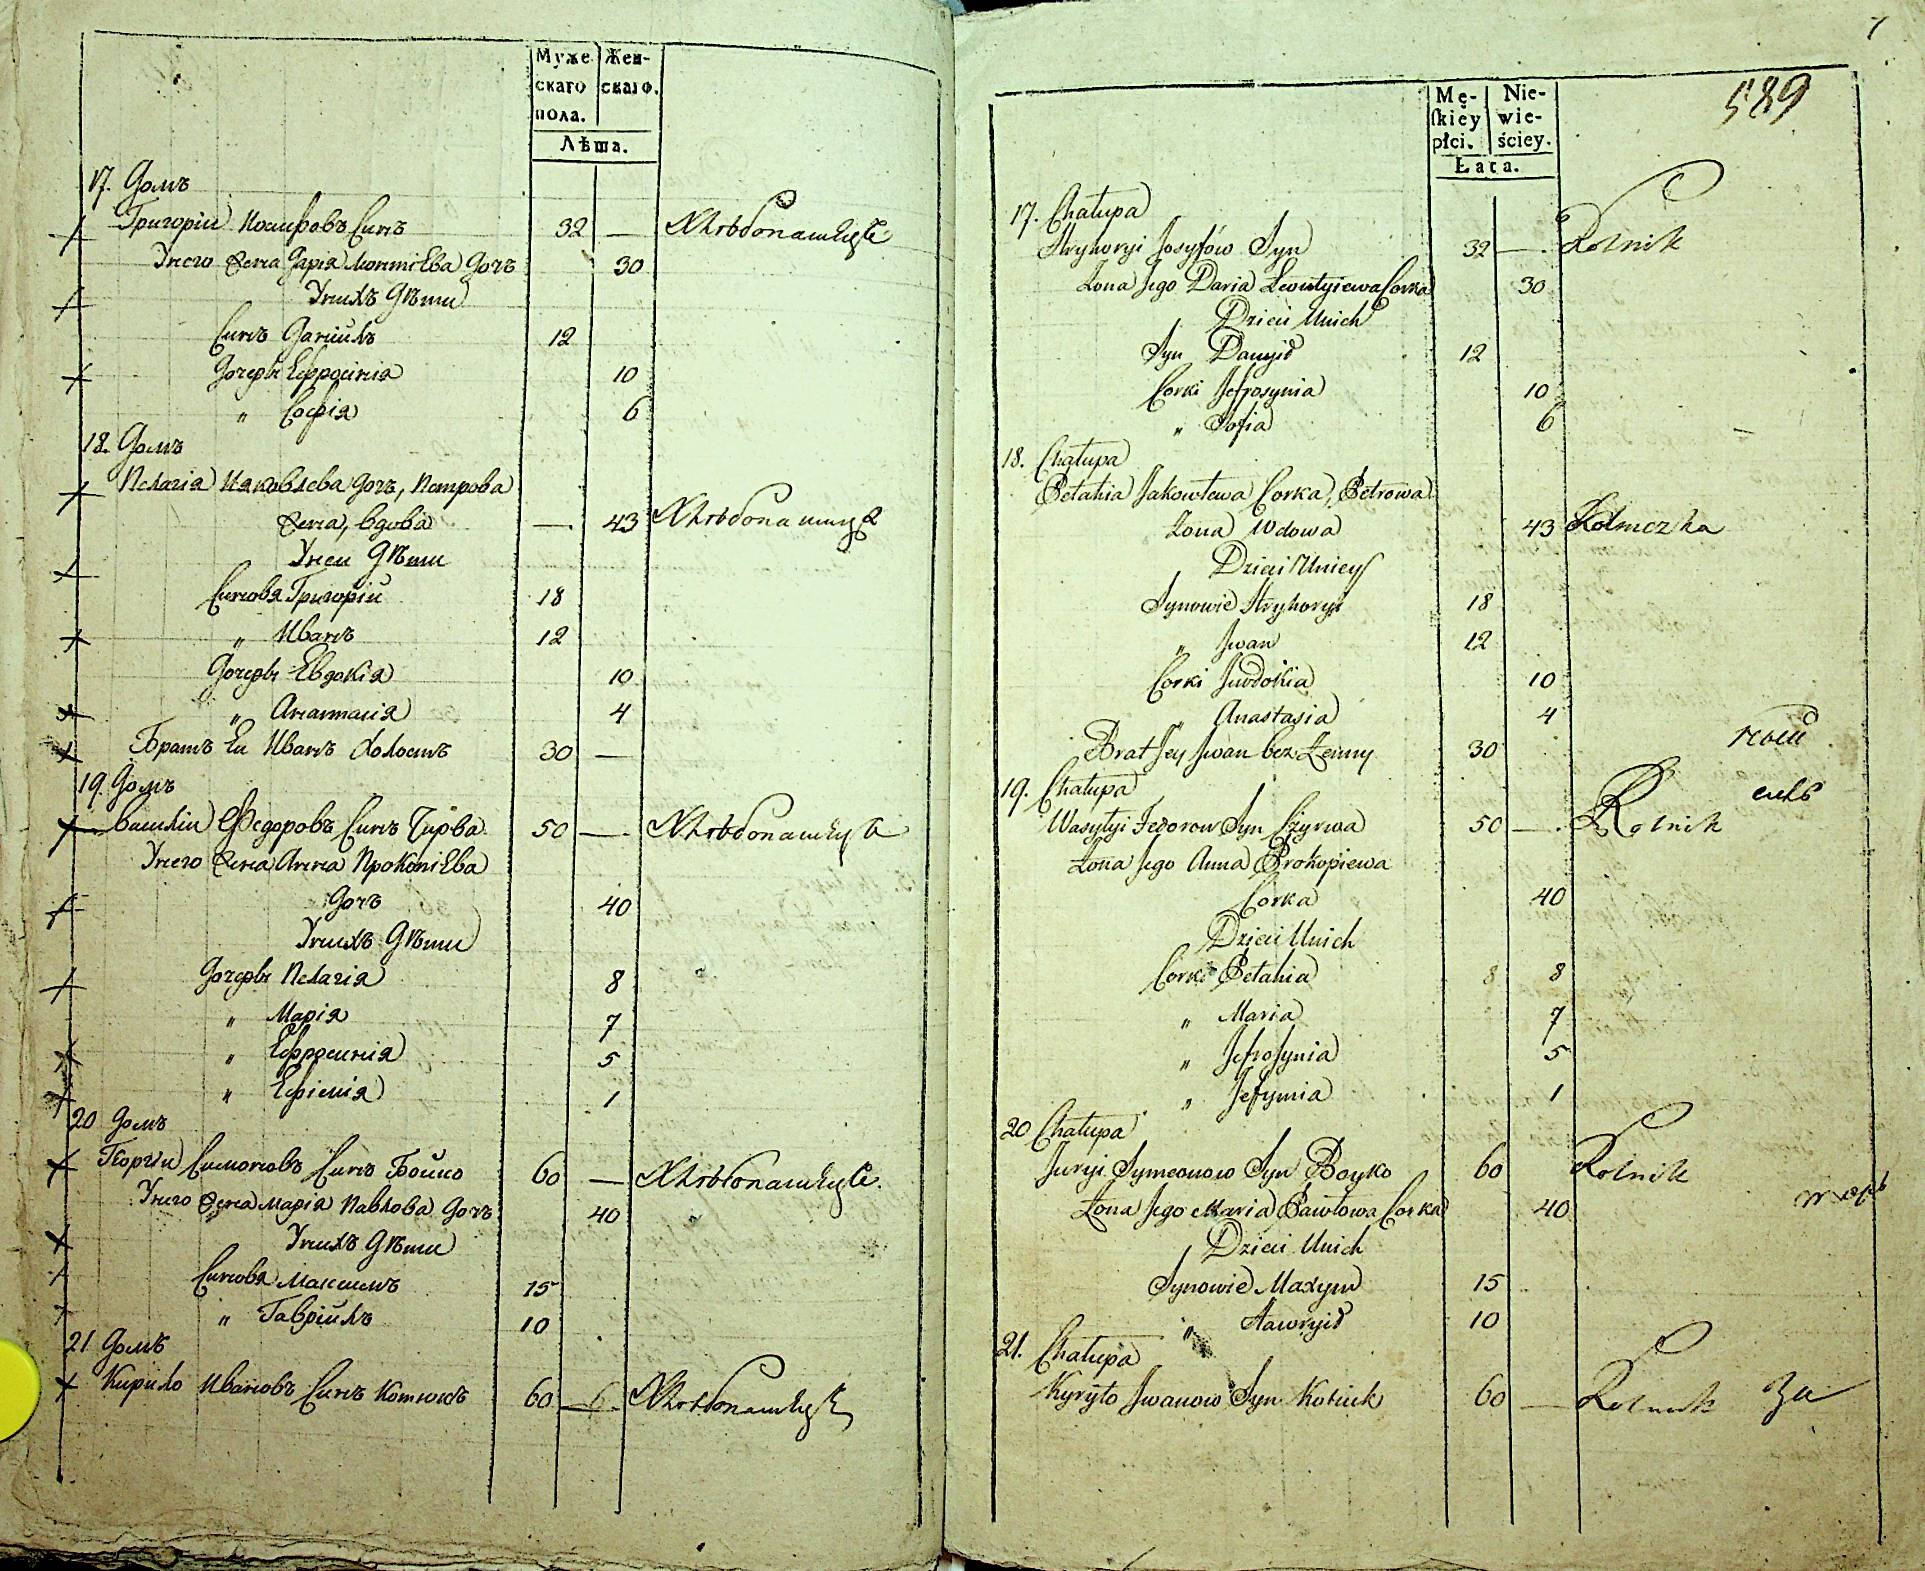 Муже Жен-
скаго скаго.
пола.
Лѣта.
17. Домъ
Григорій Иосифовъ Сынъ 32 — Хлѣбопашецъ
Унего жена Дарія Леонтіева Дочь 30
Унихъ Дѣти
Сынъ Даніилъ 12
Дочери Ефросинія 10
" Софія 6
18. Домъ
Пелагія Иаковлева Дочь, Петрова
жена, вдова — 43 Хлѣбопашица
Унеи Дѣти
Сыновя Григорій 18
" Иванъ 12
Дочери Евдокія 10
" Анастасія 4
Братъ Еи Иванъ Холостъ 30 —
19. Домъ
Василій Федоровъ Сынъ Чирва 50 — Хлѣбопашецъ
Унего жена Анна Прокопіева
Дочь 40
Унихъ Дѣти
Дочери Пелагія 8
" Марія 7
" Ефросинія 5
" Ефимія 1
20 Домъ
Георгій Симоновъ Сынъ Бойко 60 — Хлѣбопашецъ.
Унего жена Марія Павлова Дочь 40
Унихъ Дѣти
Сыновя Максимъ 15
" Гавріилъ 10
21 Домъ
Кирило Ивановъ Сынъ Котюкъ 60 — Хлѣбопашецъ
589
Mę- Nie-
skiéy wie-
płci. ściey.
Łata.
17. Chałupa
Hryhoryi Josyfów Syn 32 — Rolnik
Żona Jego Daria Lewutyiewa Corka 30
Dzieci Unich
Syn Danyił 12
Corki Jefrosynia 10
" Sofia 6
18. Chałupa
Pełahia Jakowlewa Corka, Petrowa
Żona Wdowa 43 Rolniczka
Dzieci Uniey
Synowie Hryhoryi 18
" Jwan 12
Corki Jewdokia 10
" Anastasia 4
Brat Jey Jwan bez Żenny 30
19. Chałupa
Wasylyi Fedorow Syn Czyrwa 50 — Rolnik
Żona Jego Anna Prokopiewa
Corka 40
Dzieci Unich
Corki Pełahia 8 8
" Maria 7
" Jefrosynia 5
" Jefymia 1
20 Chałupa
Juryi Symeonow Syn Boyko 60 Rolnik
Żona Jego Maria Pawłowa Corka 40
Dzieci Unich
Synowie Maxym 15
" Hawryił 10
21. Chałupa
Kyryło Jwanow Syn Kotiuk 60 — Rolnik за